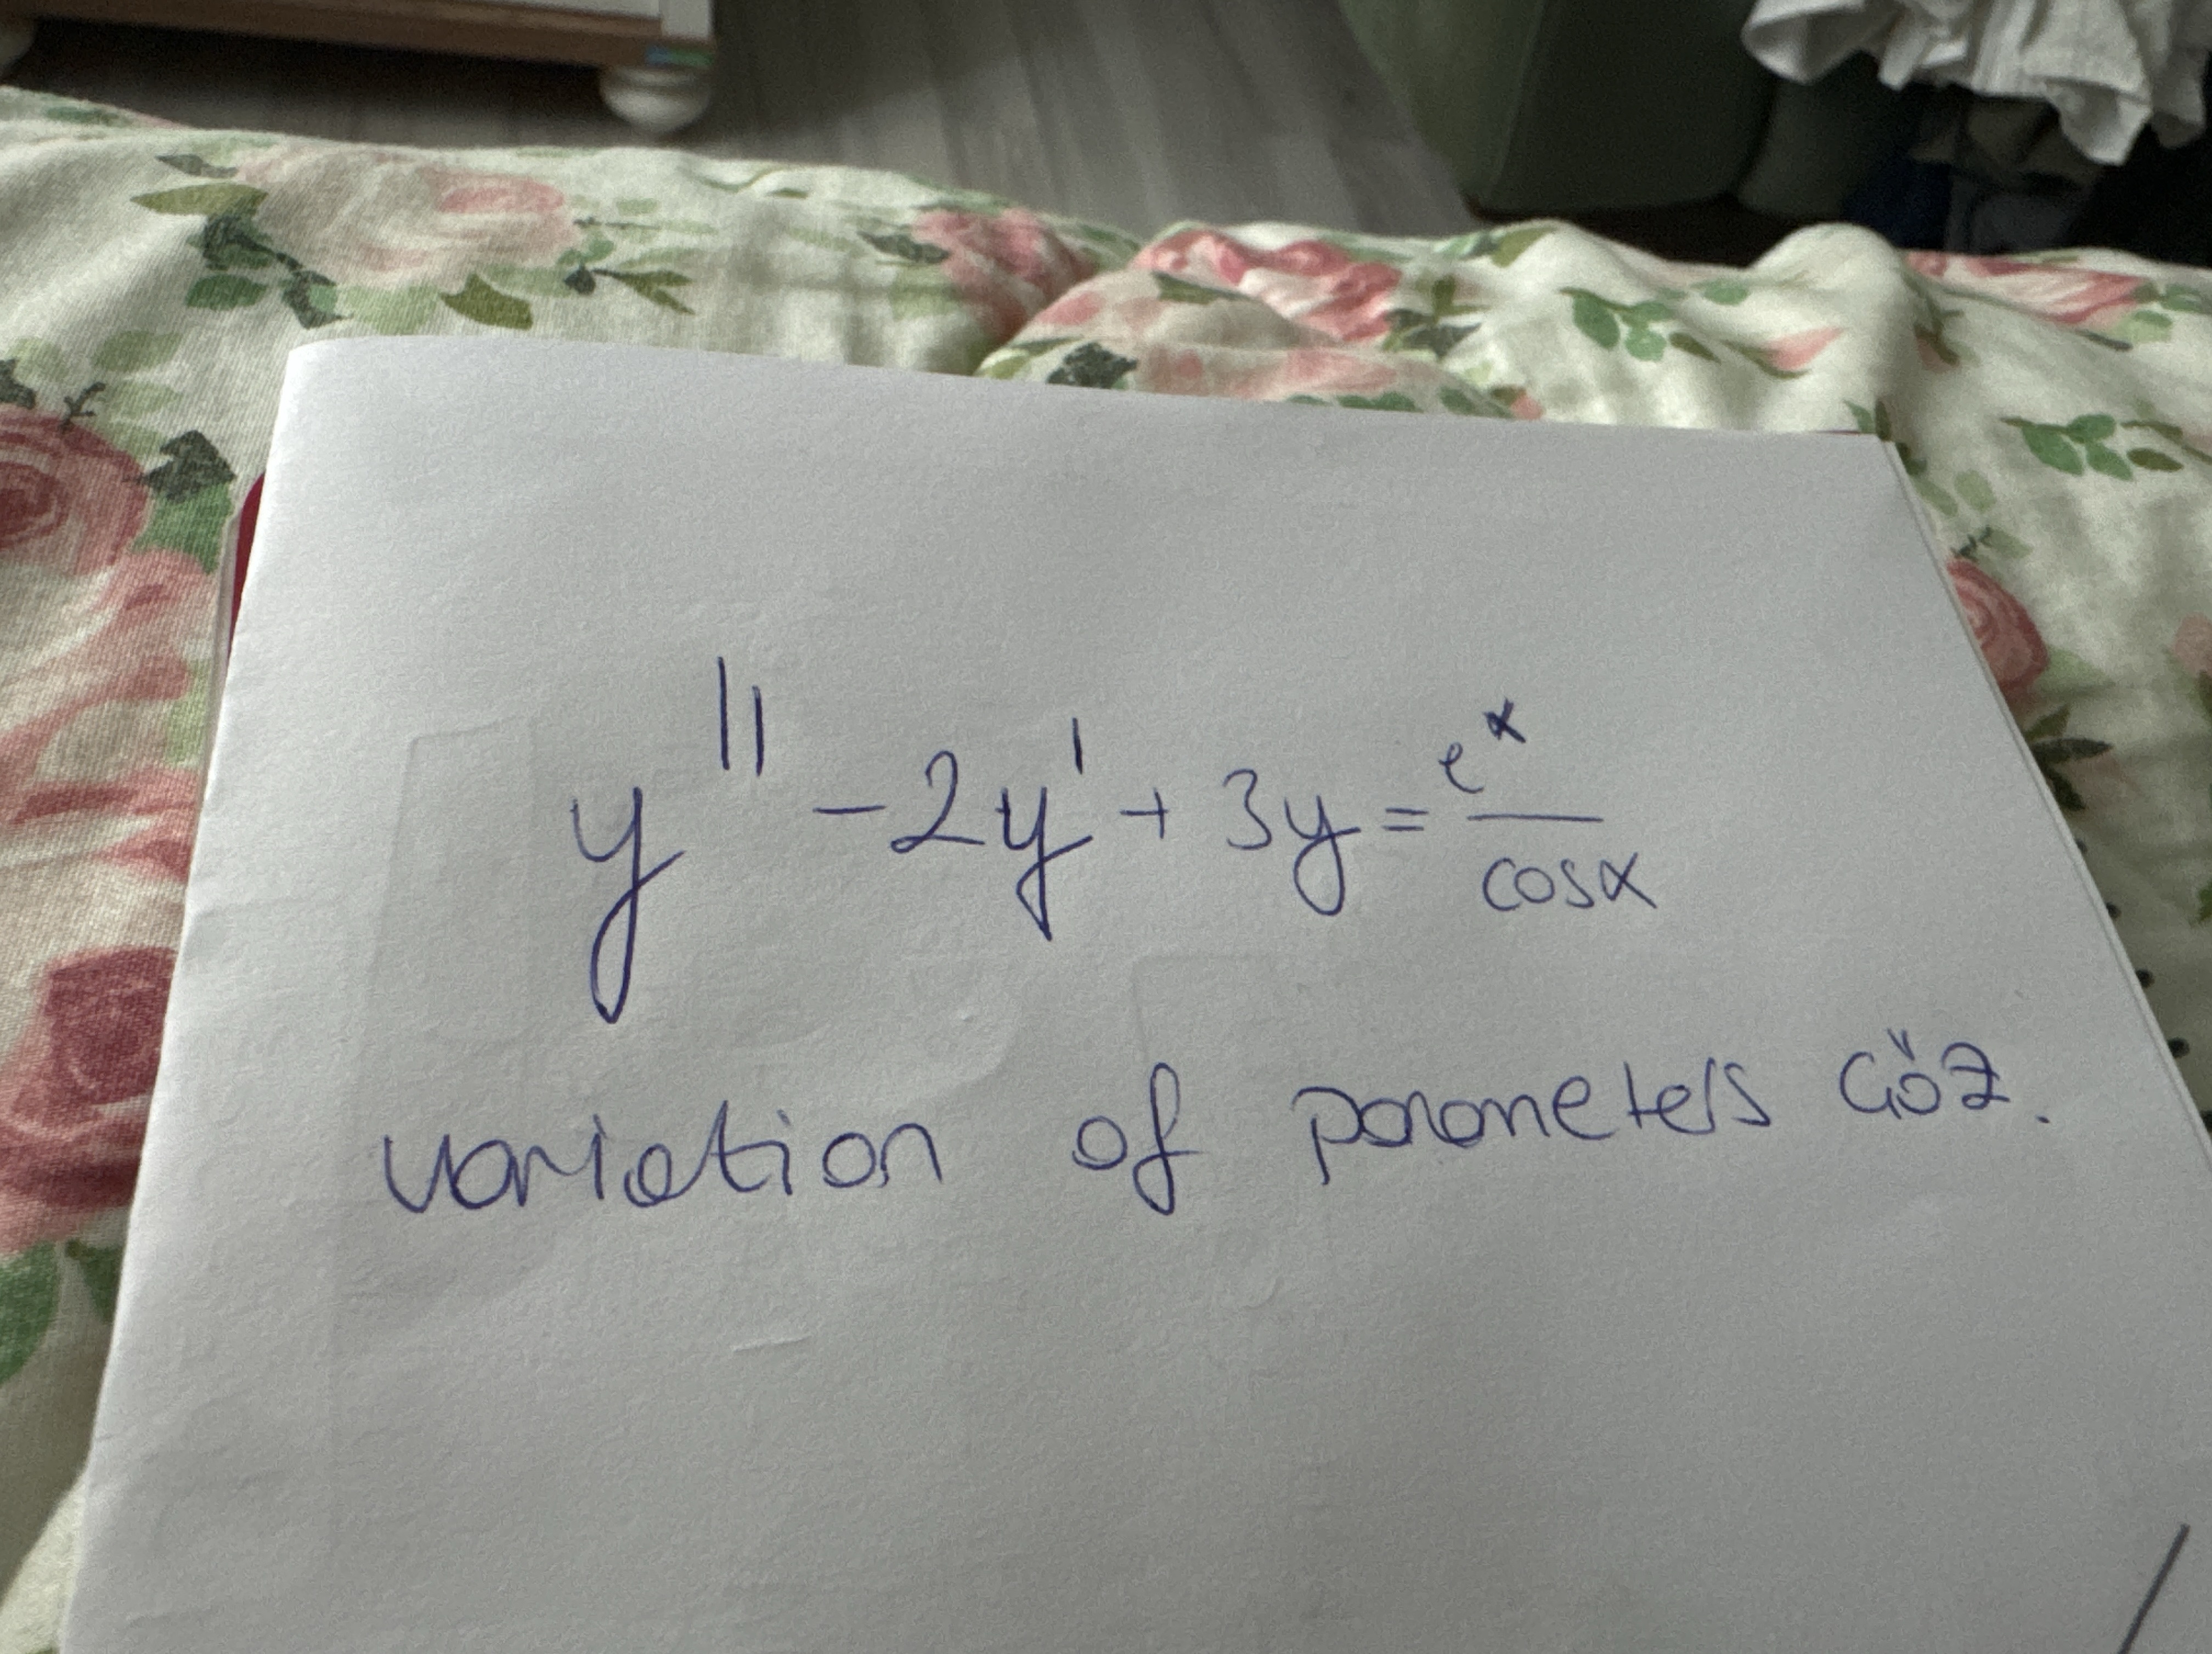 y'' - 2y' + 3y = e^x / cosx
variation of parameters Çöz.